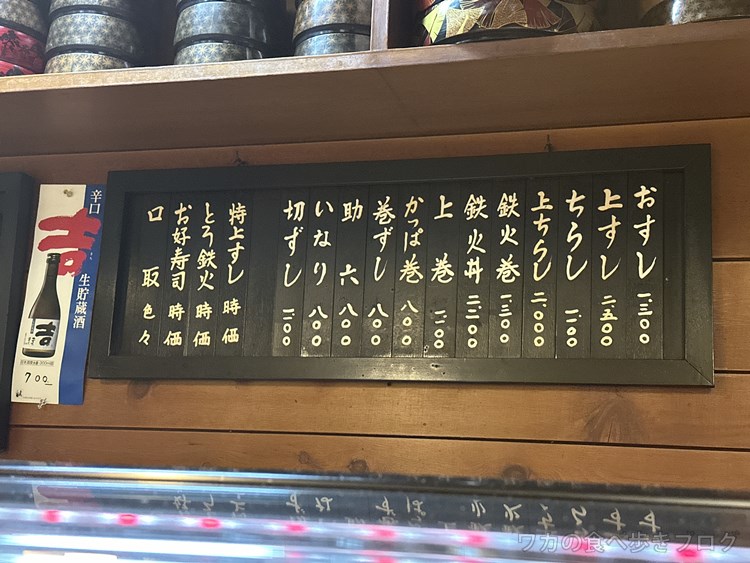 おすし 一、三〇〇
上すし 二、五〇〇
ちらし 一、一〇〇
上ちらし 二、〇〇〇
鉄火巻 一、三〇〇
鉄火丼 二、二〇〇
上巻 一、一〇〇
かっぱ巻 八〇〇
巻ずし 八〇〇
助六 八〇〇
いなり 八〇〇
切ずし 一、一〇〇
特上すし 時価
とろ鉄火 時価
お好寿司 時価
口取 色々
辛口
生貯蔵酒
吉
700
ワカの食べ歩きブログ